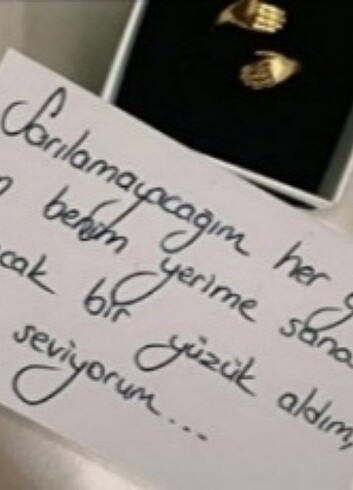 Sarılamayacağım her g
n benim yerime sana
cak bir yüzük aldım,
seviyorum...